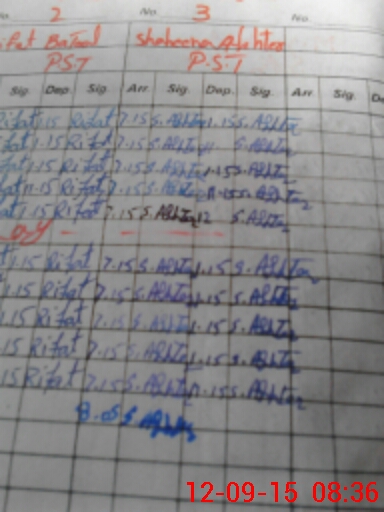 No. 2 No. 3 No.
Batool Shaheena Akhter
P.S.T P.S.T
Sig. Dep. Sig. Arr. Sig. Dep. Sig. Arr. Sig.
Rifat 1.15 Rifat 7.15 S. Akhter 1.15 S. Akhter
1.15 Rifat 7.15 S. Akhter S. Akhter
1.15 Rifat 7.15 S. Akhter 1.15 S. Akhter
1.15 Rifat 7.15 S. Akhter 1.15 S. Akhter
1.15 Rifat 7.15 S. Akhter 12 S. Akhter
1.15 Rifat 7.15 S. Akhter 1.15 S. Akhter
1.15 Rifat 7.15 S. Akhter 1.15 S. Akhter
1.15 Rifat 7.15 S. Akhter 1.15 S. Akhter
.15 Rifat 7.15 S. Akhter 1.15 S. Akhter
15 Rifat 7.15 S. Akhter 1.15 S. Akhter
8.05 S. Akhter
12-09-15 08:36